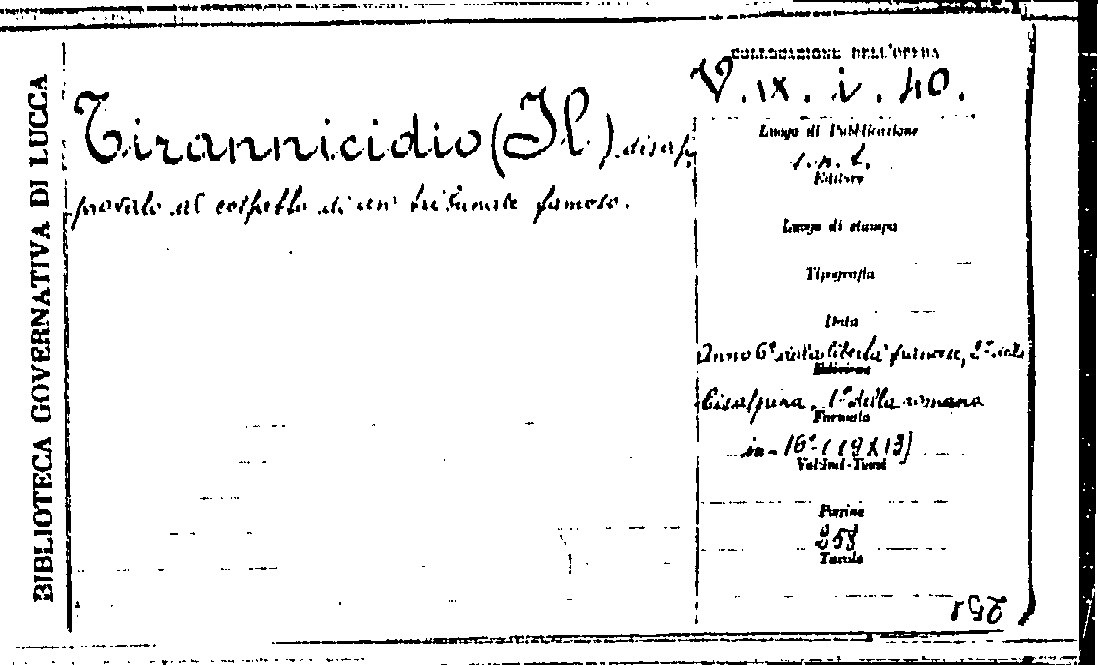 BIBLIOTECA GOVERNATIVA DI LUCCA
Tirannicidio (Il) disap,
provato al cospetto di un tribunale famoso.
COLLOCAZIONE DELL'OPERA
V. IX. i. 40.
Luogo di Pubblicazione
s. n. t.
Editore
Luogo di stampa
Tipografia
Data
Anno 6° della libertà francese, 2° della
Edizione
Cisalpina, 1° della romana
Formato
in-16° (19X13)
Volumi-Tomi
Pagine
258
Tavole